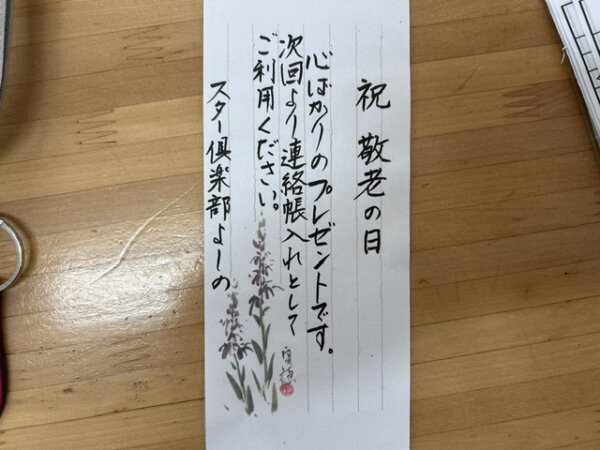 祝 敬老の日
心ばかりのプレゼントです。
次回より連絡帳入れとして
ご利用ください。
スター倶楽部よしの